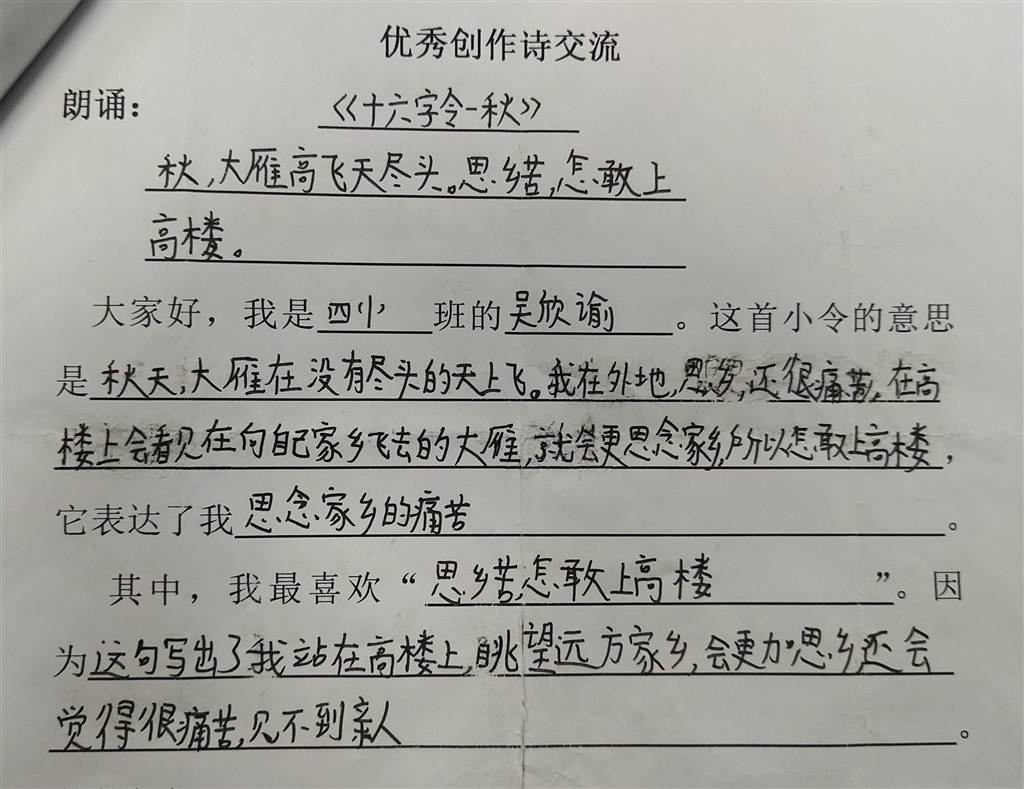 优秀创作诗交流
朗诵： 《十六字令-秋》
秋，大雁高飞天尽头。思乡苦，怎敢上
高楼。
大家好，我是四小班的吴欣谕。这首小令的意思
是秋天，大雁在没有尽头的天上飞。我在外地，思乡，还很痛苦，在高
楼上会看见在向自己家乡飞去的大雁，就会更思念家乡，所以怎敢上高楼，
它表达了我思念家乡的痛苦。
其中，我最喜欢“思乡苦，怎敢上高楼”。因
为这句写出了我站在高楼上，眺望远方家乡，会更加思乡还会
觉得很痛苦，见不到亲人。